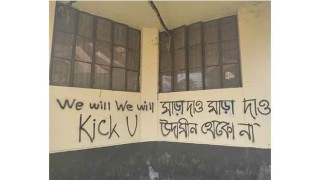 We will We will
Kick U
সাড়া দাও সাড়া দাও
উদাসীন থেকো না